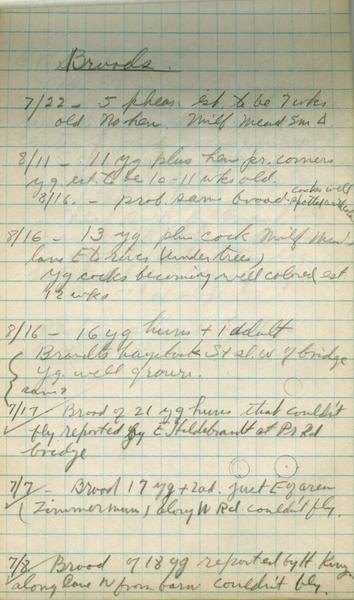 Broods.
7/22 - 5 pheas. est. to be 7 wks
old. No hen. Milf Mead Sm Δ
8/11 - 11 yg plus hen pr. corners
yg est. to be 10-11 wks old.
8/16. - prob. same brood cocks well
8/16 - 13 yg. plus cock Milf Mead's
lane E to river (under trees)
yg cocks becoming well colored est
12 wks
8/16 - 16 yg huns + 1 adult
St sl. W of bridge
yg. well grown.
same?
7/17 Brood of 21 yg huns that couldn't
fly reported by E Hildebrandt at Pr Rd
bridge
7/7 - Brood 17 yg + 2 ad. just E
(Zimmerman) along W Rd. couldn't fly.
7/8 Brood of 18 yg reported by H King
along lane N from barn couldn't fly.